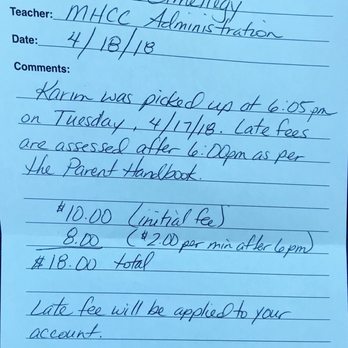 Teacher: MHCC Administration
Date: 4/18/18
Comments:
Karim was picked up at 6:05pm
on Tuesday, 4/17/18. Late fees
are assessed after 6:00pm as per
the Parent Handbook.
$10.00 (initial fee)
8.00 ($2.00 per min after 6pm)
$18.00 total
Late fee will be applied to your
account.